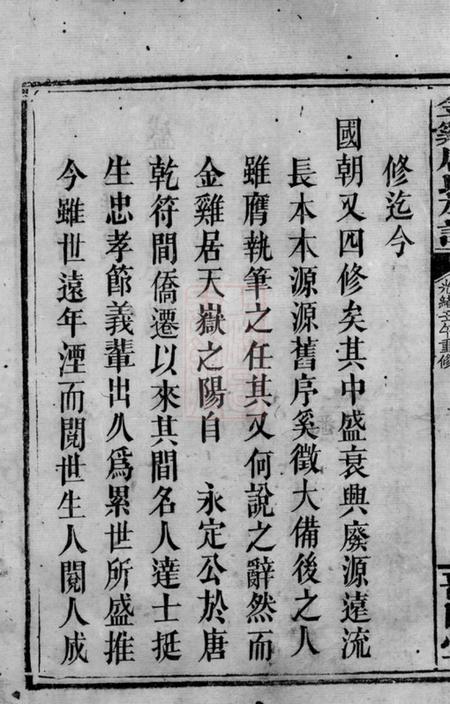 修迄今
國朝又四修矣其中盛衰興廢源遠流
長本木源源舊序奚徵大備後之人
雖膺執筆之任其又何說之辭然而
金雞居天嶽之陽自 永定公於唐
乾符間僑遷以來其間名人達士挺
生忠孝節義輩出久為累世所盛推
今雖世遠年湮而閱世生人閱人成